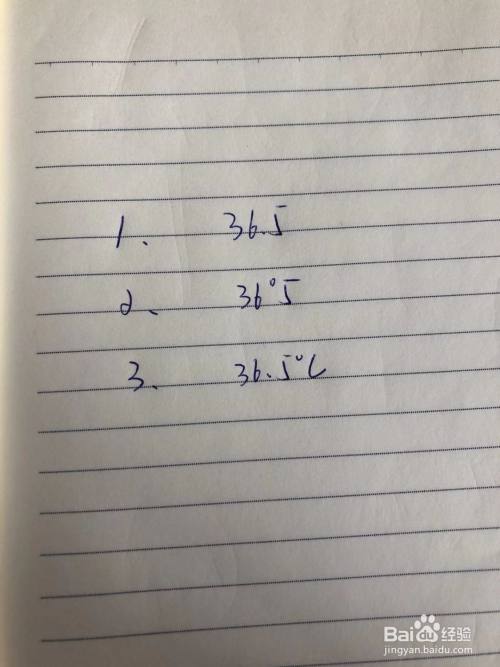 1、 36.5
2、 36°5
3、 36.5°C
Bai经验
jingyan.baidu.com